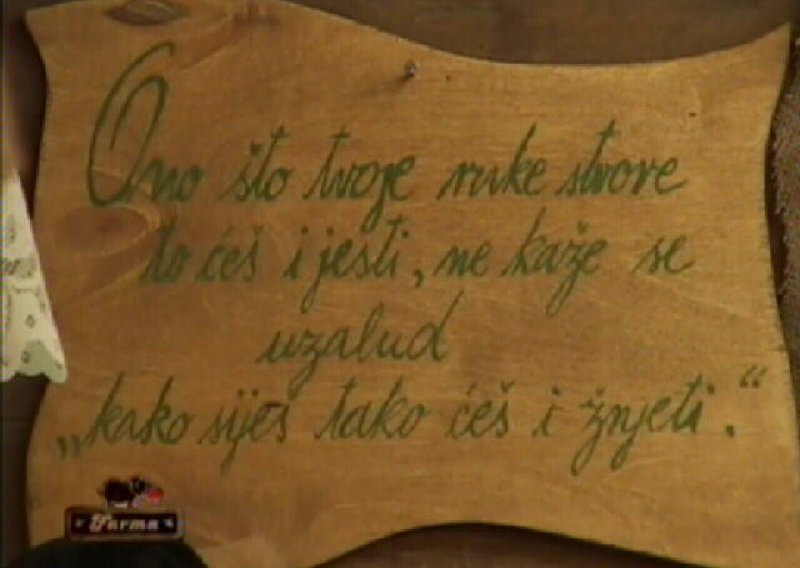 Ono što tvoje ruke stvore
to ćeš i jesti, ne kaže se
uzalud
„kako siješ tako ćeš i žnjeti.“
Farma